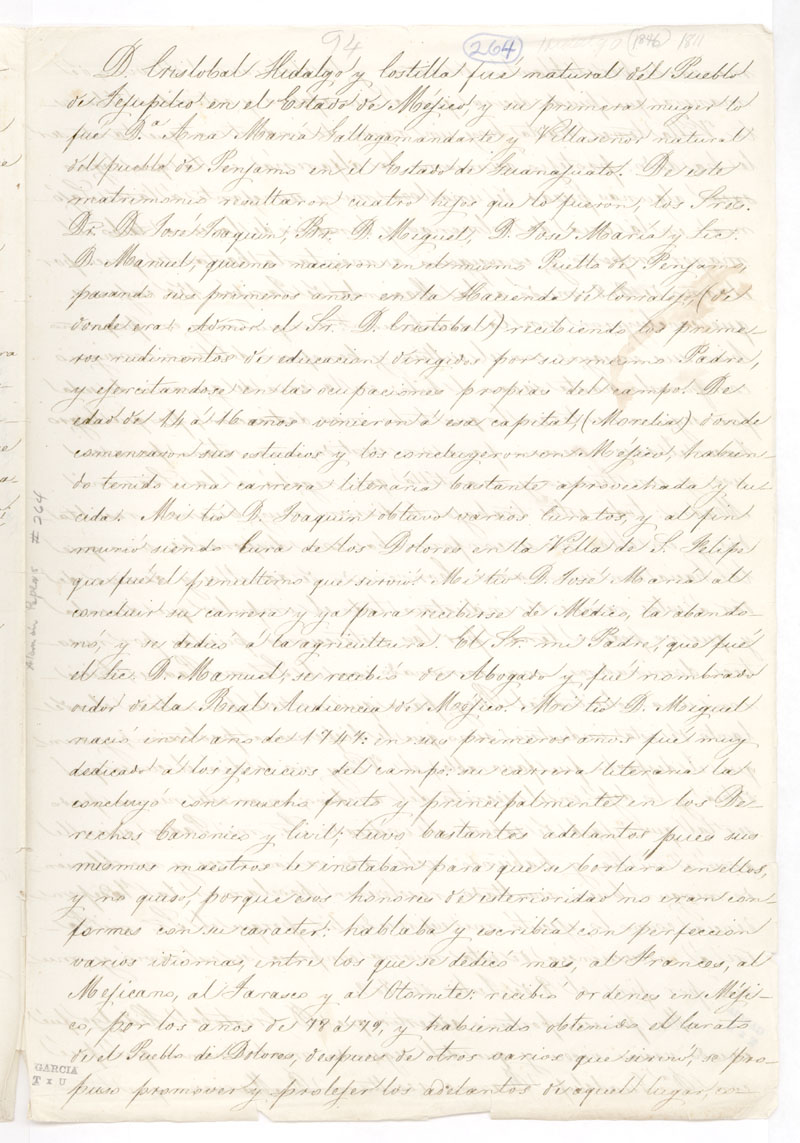 94 264 (1846) 1811
D. Cristobal Hidalgo y Costilla fué natural del Pueblo
de Tejupilco en el Estado de Méjico y su primera muger lo
fué D.ª Ana María Gallagamandarte y Villaseñor natural
del pueblo de Penjamo en el Estado de Guanajuato. De este
matrimonio resultaron cuatro hijos que lo fueron, los Sres.
Dr. D. José Joaquin, Br. D. Miguel, D. José María y Lic.
D. Manuel, quienes nacieron en el mismo Pueblo de Penjamo,
pasando sus primeros años en la Hacienda de Corralejo, (de
donde era Admor. el Sr. D. Cristobal) recibiendo los prime-
ros rudimentos de educacion dirigidos por su mismo Padre,
y ejercitandose en las ocupaciones propias del campo. De
edad de 14 á 16 años vinieron á esa capital, (Morelia) donde
comenzaron sus estudios y los concluyeron en Méjico, habien-
do tenido una carrera literária bastante aprovechada y lu-
cida. Mi tio D. Joaquin obtuvo varios Curatos, y al fin
murió siendo Cura de los Dolores en la Villa de S. Felipe
que fué el penultimo que sirvió. Mi tio D. José María al
concluir su carrera y ya para recibirse de Médico, la abando-
nó, y se dedicó á la agricultura. El Sr. mi Padre, que fué
el Lic. D. Manuel, se recibió de Abogado y fué nombrado
oidor de la Real Audiencia de Méjico. Mi tio D. Miguel
nació en el año de 1747: en sus primeros años fué muy
dedicado á los ejercicios del campo: su carrera literaria la
concluyó con mucho fruto y principalmente en los De-
rechos Canonico y Civil; tuvo bastantes adelantos pues sus
mismos maestros le instaban para que se borlara en ellos,
y no quiso, porque esos honores de esterioridad no eran con-
formes con su caracter: hablaba y escribía con perfeccion
varios idiomas, entre los que se dedicó mas, al Frances, al
Mejicano, al Tarasco y al Otomite: recibió ordenes en Méji-
co, por los años de 78 á 79, y habiendo obtenido el Curato
de el Pueblo de Dolores, despues de otros varios que sirvió, se pro-
puso promover y protejer los adelantos de aquel lugar, 
Alaman Papers # 264
GARCIA
T x U